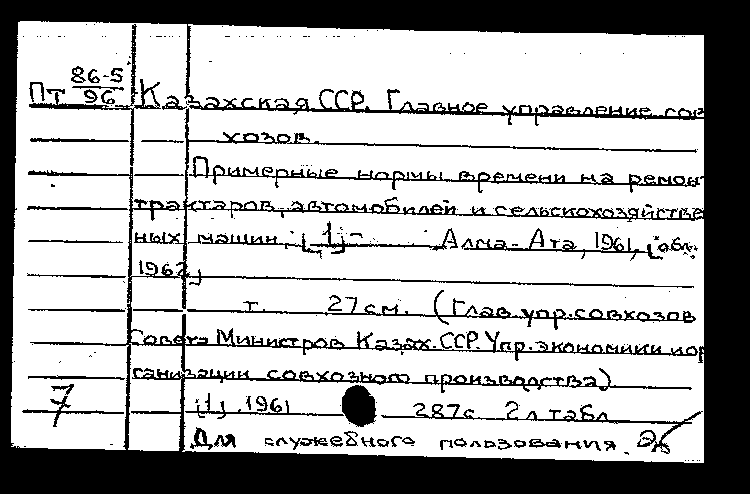 Пт 86-5/96 Казахская ССР. Главное управление сов
хозов.
Примерные нормы времени на ремон
трактаров, автомобилей и сельскохозяйстве
ных машин. [1]- Алма-Ата, 1961, [обл.
1962]
т. 27 см. (Глав.упр.совхозов
Совета Министров Казах.ССР.Упр.экономики и ор
ганизации совхозного производства)
7 [1]. 1961 287с. 2 л.табл.
Для служебного пользования.